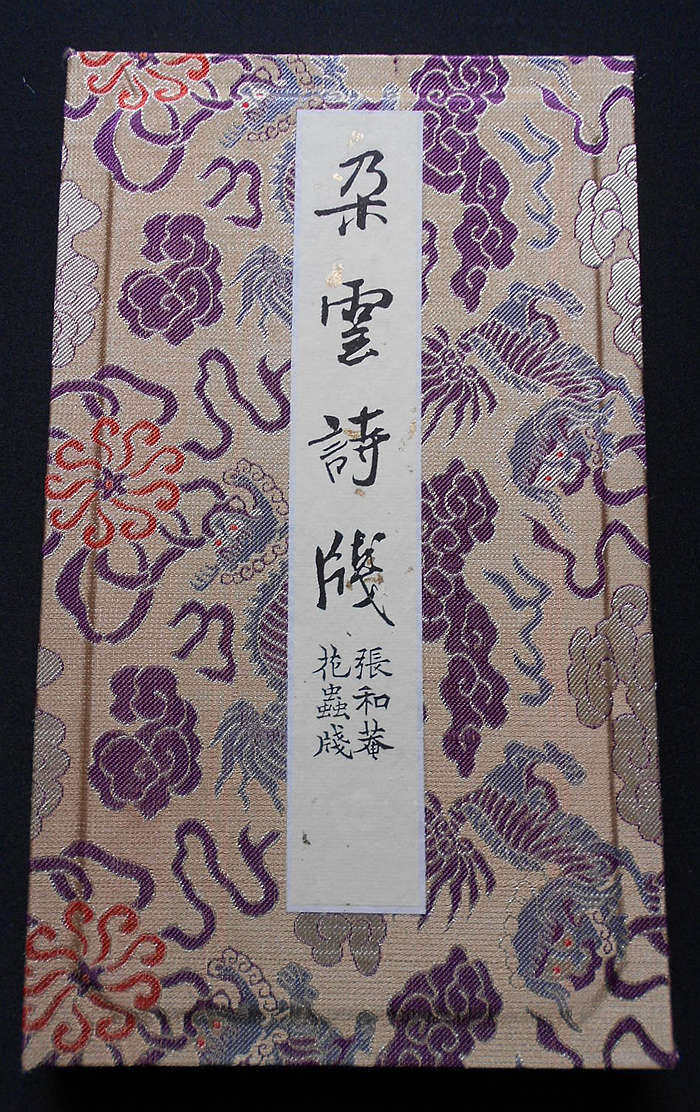 朶雲詩牋
張和菴
花蟲牋